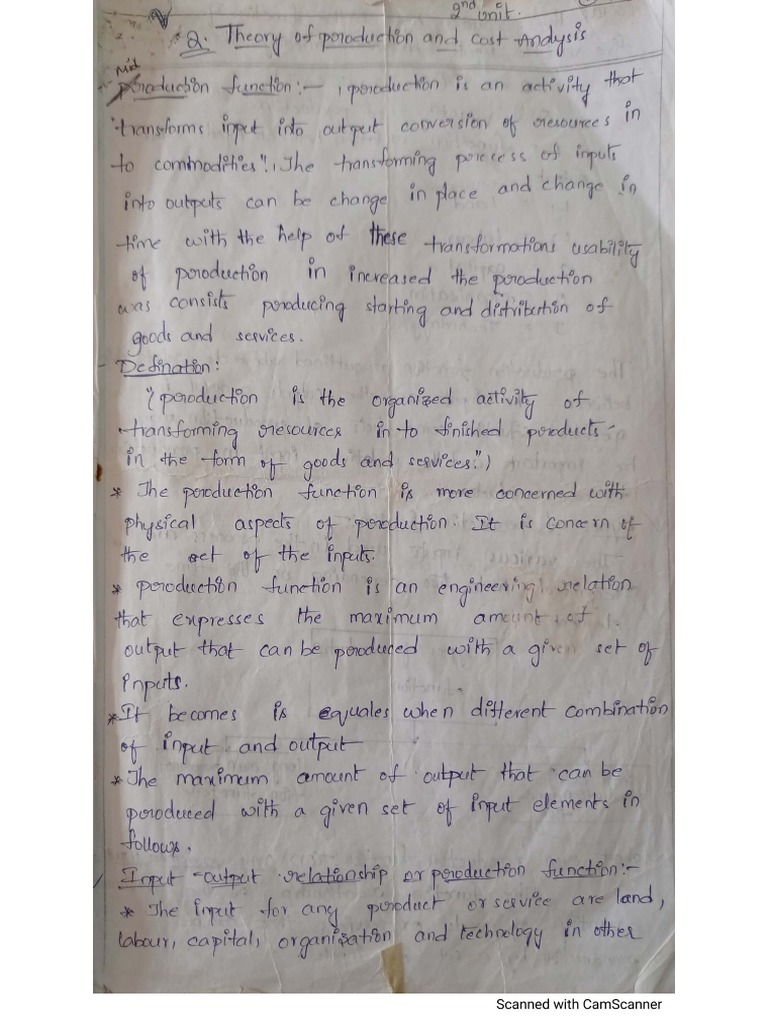 2nd unit.
2. Theory of production and cost Analysis
Mid
production function :- production is an activity that
"transforms input into output conversion of resources in
to commodities". The transforming process of inputs
into outputs can be change in place and change in
time with the help of these transformations usability
of production in increased the production
was consists producing starting and distribution of
goods and services.
- Defination:
"(production is the organized activity of
transforming resources in to finished products
in the form of goods and services.")
* The production function is more concerned with
physical aspects of production. It is concern of
the set of the inputs.
* production function is an engineering relation
that expresses the maximum amount of
output that can be produced with a given set of
Inputs.
* It becomes is equales when different combination
of input and output
* The maximum amount of output that can be
produced with a given set of input elements in
follows.
Input - output relationship or production function :-
* The input for any product or service are land,
labour, capital, organisation and technology in other
Scanned with CamScanner